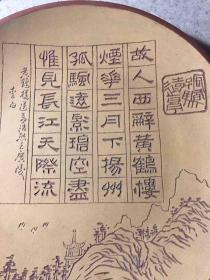 故人西辭黃鶴樓
煙花三月下揚州
孤帆遠影碧空盡
惟見長江天際流
黃鶴樓送孟浩然之廣陵
李白